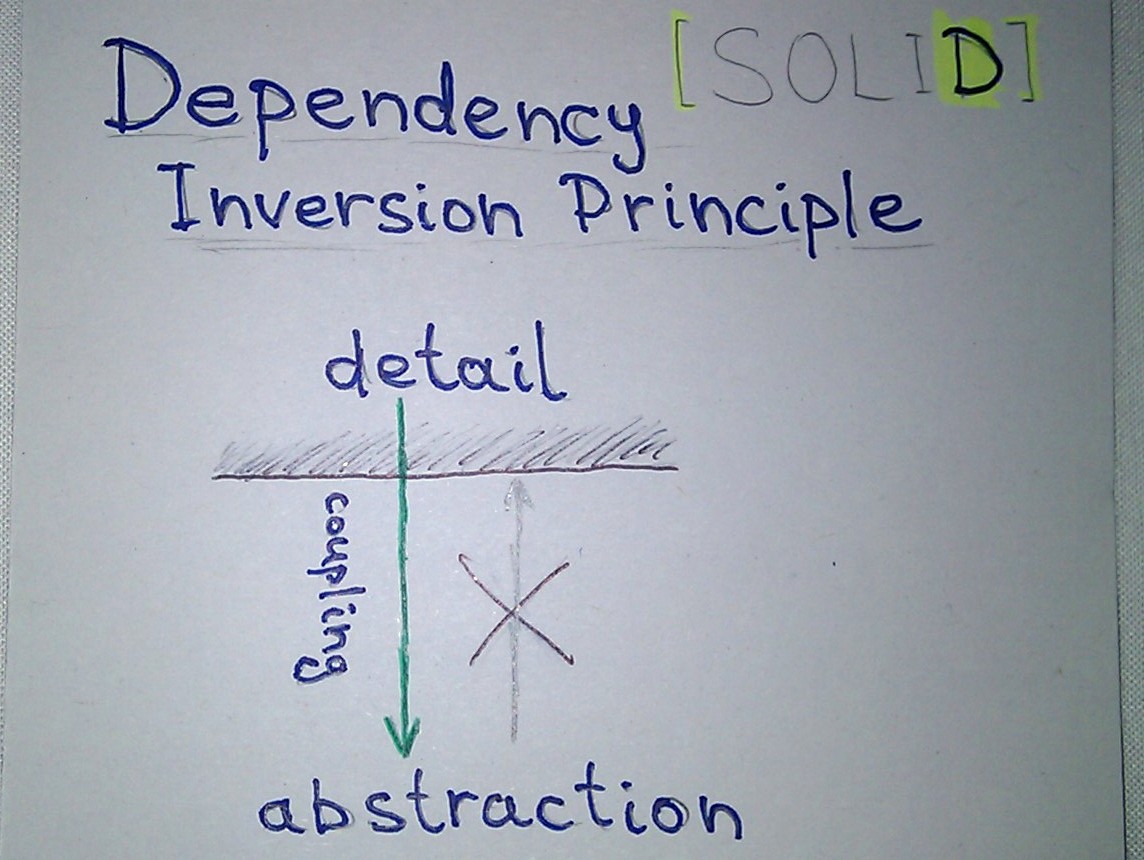 Dependency [SOLID]
Inversion Principle
detail
coupling
abstraction